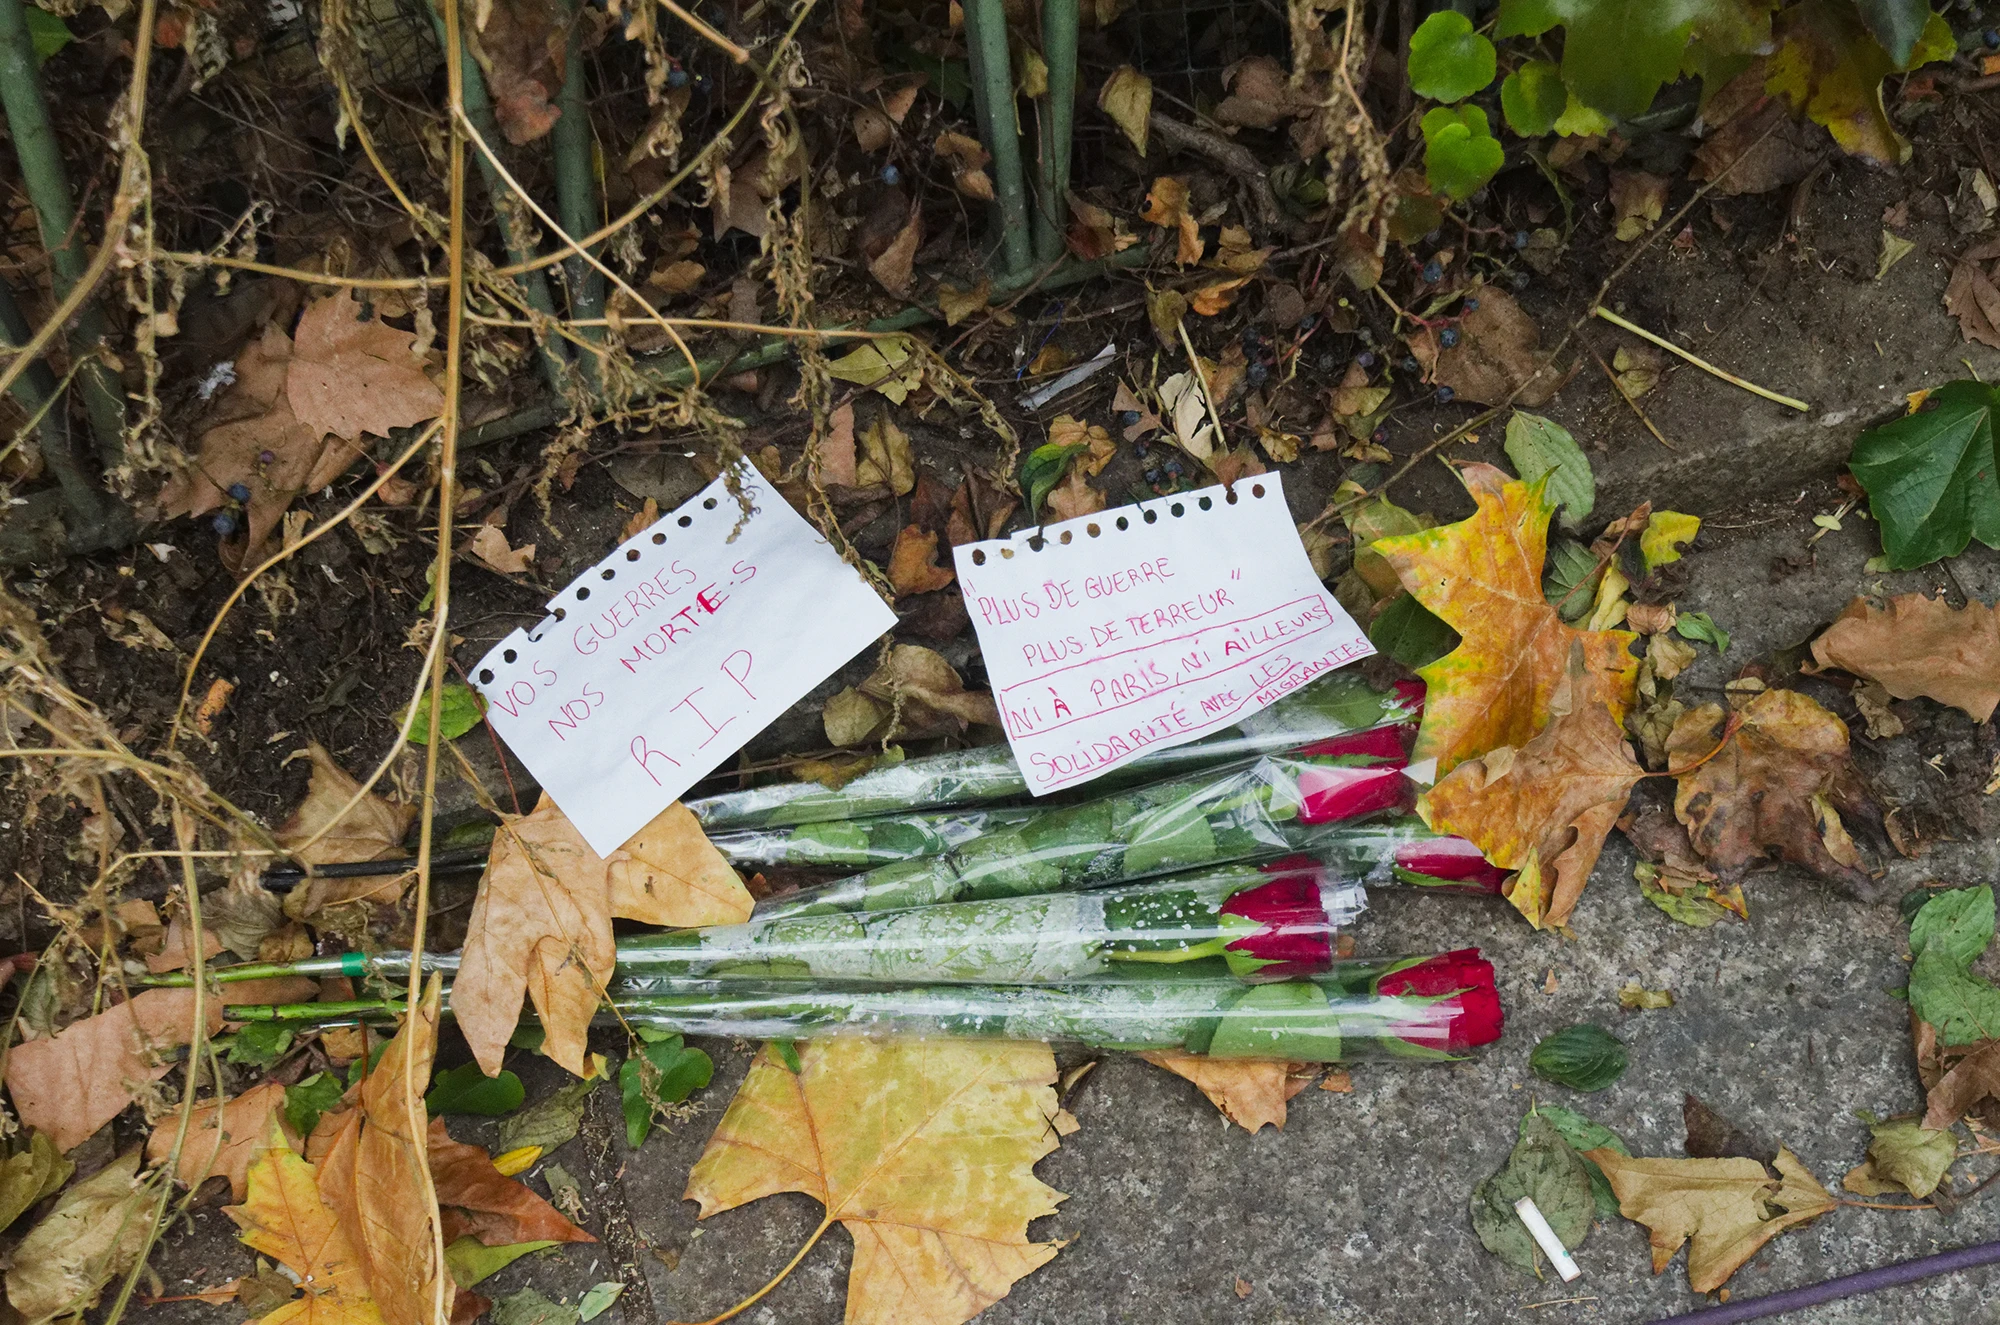 VOS GUERRES
NOS MORTE.S
R.I.P
"PLUS DE GUERRE
PLUS DE TERREUR"
NI À PARIS, NI AILLEURS
SOLIDARITÉ AVEC LES
MIGRANTES